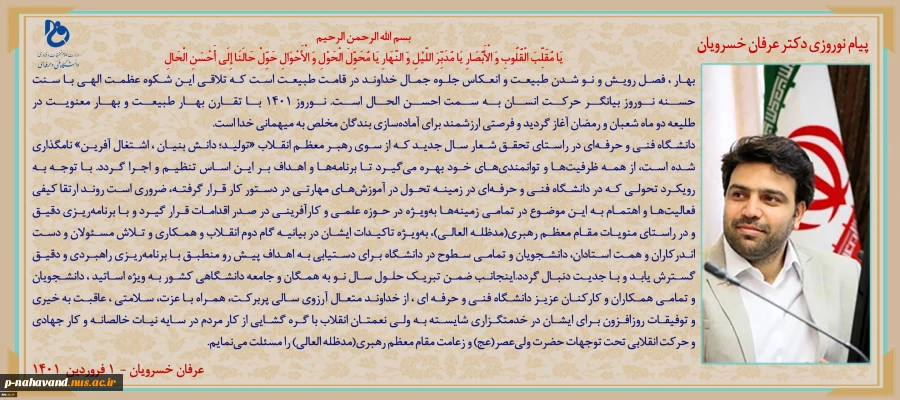 پیام نوروزی دکتر عرفان خسرویان
بسم الله الرحمن الرحیم
یَا مُقَلِّبَ الْقُلُوبِ وَ الْأَبْصَارِ یَا مُدَبِّرَ اللَّیْلِ وَ النَّهَارِ یَا مُحَوِّلَ الْحَوْلِ وَ الْأَحْوَالِ حَوِّلْ حَالَنَا إِلَى أَحْسَنِ الْحَالِ
بهار ، فصل رویش و نو شدن طبیعت و انعکاس جلوه جمال خداوند در قامت طبیعت است که تلاقی این شکوه عظمت الهی با سنت
حسنه نوروز بیانگر حرکت انسان به سمت احسن الحال است. نوروز ۱۴۰۱ با تقارن بهار طبیعت و بهار معنویت در
طلیعه دو ماه شعبان و رمضان آغاز گردید و فرصتی ارزشمند برای آماده‌سازی بندگان مخلص به میهمانی خدا است.
دانشگاه فنی و حرفه‌ای در راستای تحقق شعار سال جدید که از سوی رهبر معظم انقلاب «تولید؛ دانش بنیان ، اشتغال آفرین» نامگذاری
شده است، از همه ظرفیت‌ها و توانمندی‌های خود بهره می‌گیرد تا برنامه‌ها و اهداف بر این اساس تنظیم و اجرا گردد. با توجه به
رویکرد تحولی که در دانشگاه فنی و حرفه‌ای در زمینه تحول در آموزش‌های مهارتی در دستور کار قرار گرفته، ضروری است روند ارتقا کیفی
فعالیت‌ها و اهتمام به این موضوع در تمامی زمینه‌ها به‌ویژه در حوزه علمی و کارآفرینی در صدر اقدامات قرار گیرد و با برنامه‌ریزی دقیق
و در راستای منویات مقام معظم رهبری(مدظله العالی)، به‌ویژه تاکیدات ایشان در بیانیه گام دوم انقلاب و همکاری و تلاش مسئولان و دست
اندرکاران و همت استادان، دانشجویان و تمامی سطوح در دانشگاه برای دستیابی به اهداف پیش رو منطبق با برنامه‌ریزی راهبردی و دقیق
گسترش یابد و با جدیت دنبال گردد.اینجانب ضمن تبریک حلول سال نو به همگان و جامعه دانشگاهی کشور به ویژه اساتید ، دانشجویان
و تمامی همکاران و کارکنان عزیز دانشگاه فنی و حرفه ای ، از خداوند متعال آرزوی سالی پربرکت، همراه با عزت، سلامتی ، عاقبت به خیری
و توفیقات روزافزون برای ایشان در خدمتگزاری شایسته به ولی نعمتان انقلاب با گره گشایی از کار مردم در سایه نیات خالصانه و کار جهادی
و حرکت انقلابی تحت توجهات حضرت ولی‌عصر(عج) و زعامت مقام معظم رهبری(مدظله العالی) را مسئلت می‌نمایم.
عرفان خسرویان - ۱ فروردین ۱۴۰۱
p-nahavand.nus.ac.ir